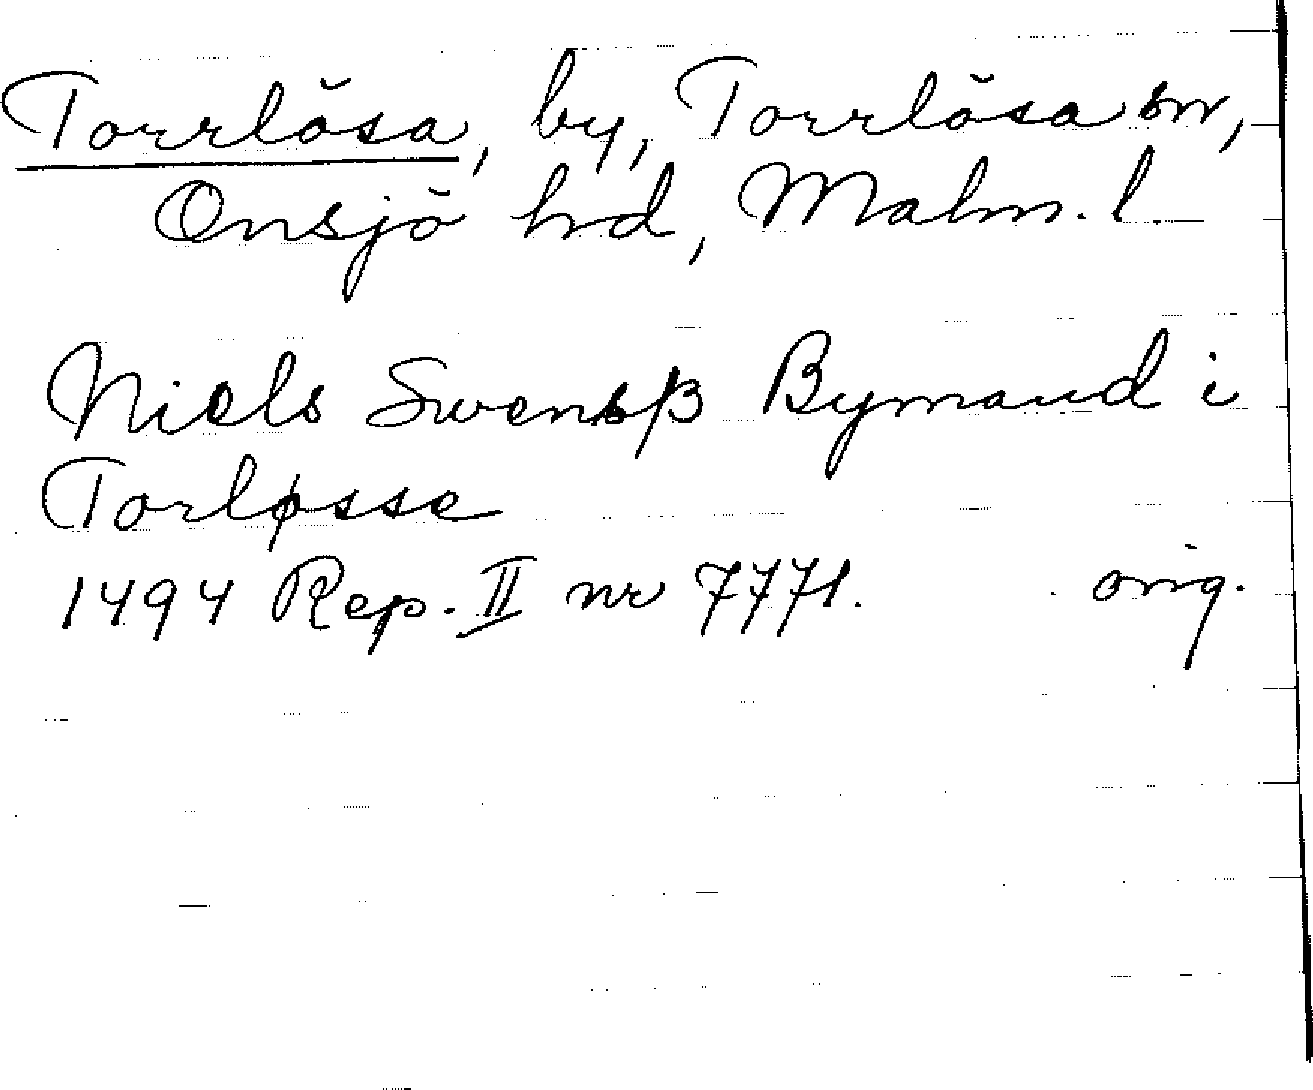 Torrlösa, by, Torrlösa sn,
Onsjö hd, Malm. l.
Niels Swensβ Bymand i
Torløsse
1494 Rep. II nr 7771. orig.